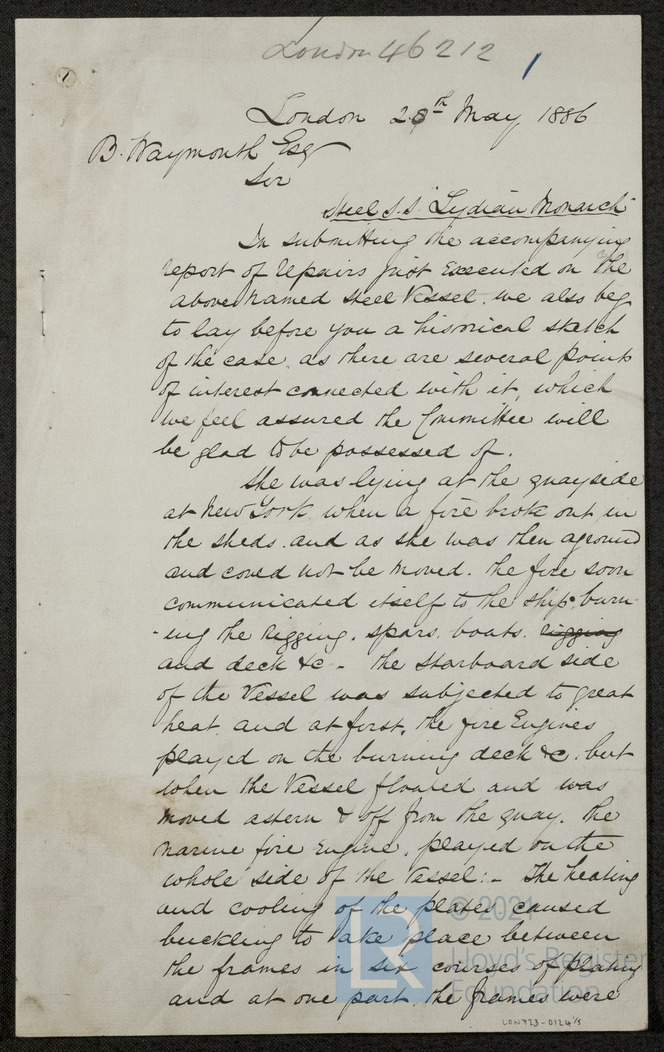 London 46212
1
1
London 28th May 1886
B. Waymouth Esq
Sir
Steel S.S. "Lydian Monarch"
In submitting the accompanying
report of repairs just executed on the
above named Steel Vessel. we also beg
to lay before you a historical sketch
of the case, as there are several points
of interest connected with it, which
we feel assured the Committee will
be glad to be possessed of.
She was lying at the quayside
at New York, when a fire broke out in
the sheds. and as she was then aground
and could not be moved. the fire soon
communicated itself to the ship. burn-
-ing the rigging. spars. boats. rigging
and deck &c - the starboard side
of the Vessel was subjected to great
heat, and at first, the fire Engines
played on the burning deck &c. but
when the Vessel floated and was
moved astern & off from the quay. the
marine fire engine, played on the
whole side of the Vessel:- The heating
and cooling of the plates caused
buckling to take place between
the frames in six courses of plating
and at one part, the frames were
© 2021
Lloyd's Register
Foundation
LR
LON723-0124 1/5